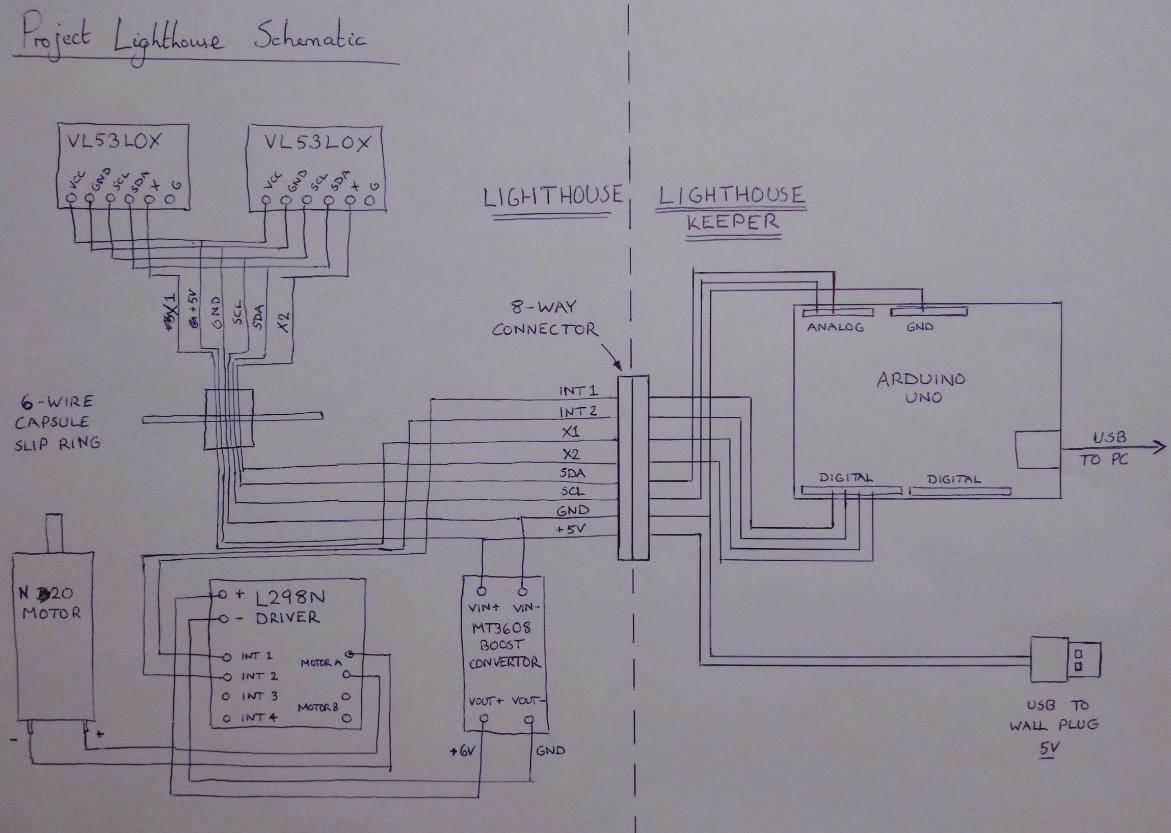 Project Lighthouse Schematic
VL53LOX
VCC GND SCL SDA X G
VL53LOX
VCC GND SCL SDA X G
LIGHTHOUSE
LIGHTHOUSE
KEEPER
X1
+5V
GND
SCL
SDA
X2
8-WAY
CONNECTOR
6-WIRE
CAPSULE
SLIP RING
INT 1
INT 2
X1
X2
SDA
SCL
GND
+5V
ANALOG
GND
ARDUINO
UNO
DIGITAL
DIGITAL
USB
TO PC
N20
MOTOR
-
+
+ L298N
- DRIVER
INT 1
INT 2
INT 3
INT 4
MOTOR A
MOTOR B
VIN+ VIN-
MT3608
BOOST
CONVERTOR
VOUT+ VOUT-
+6V
GND
USB TO
WALL PLUG
5V